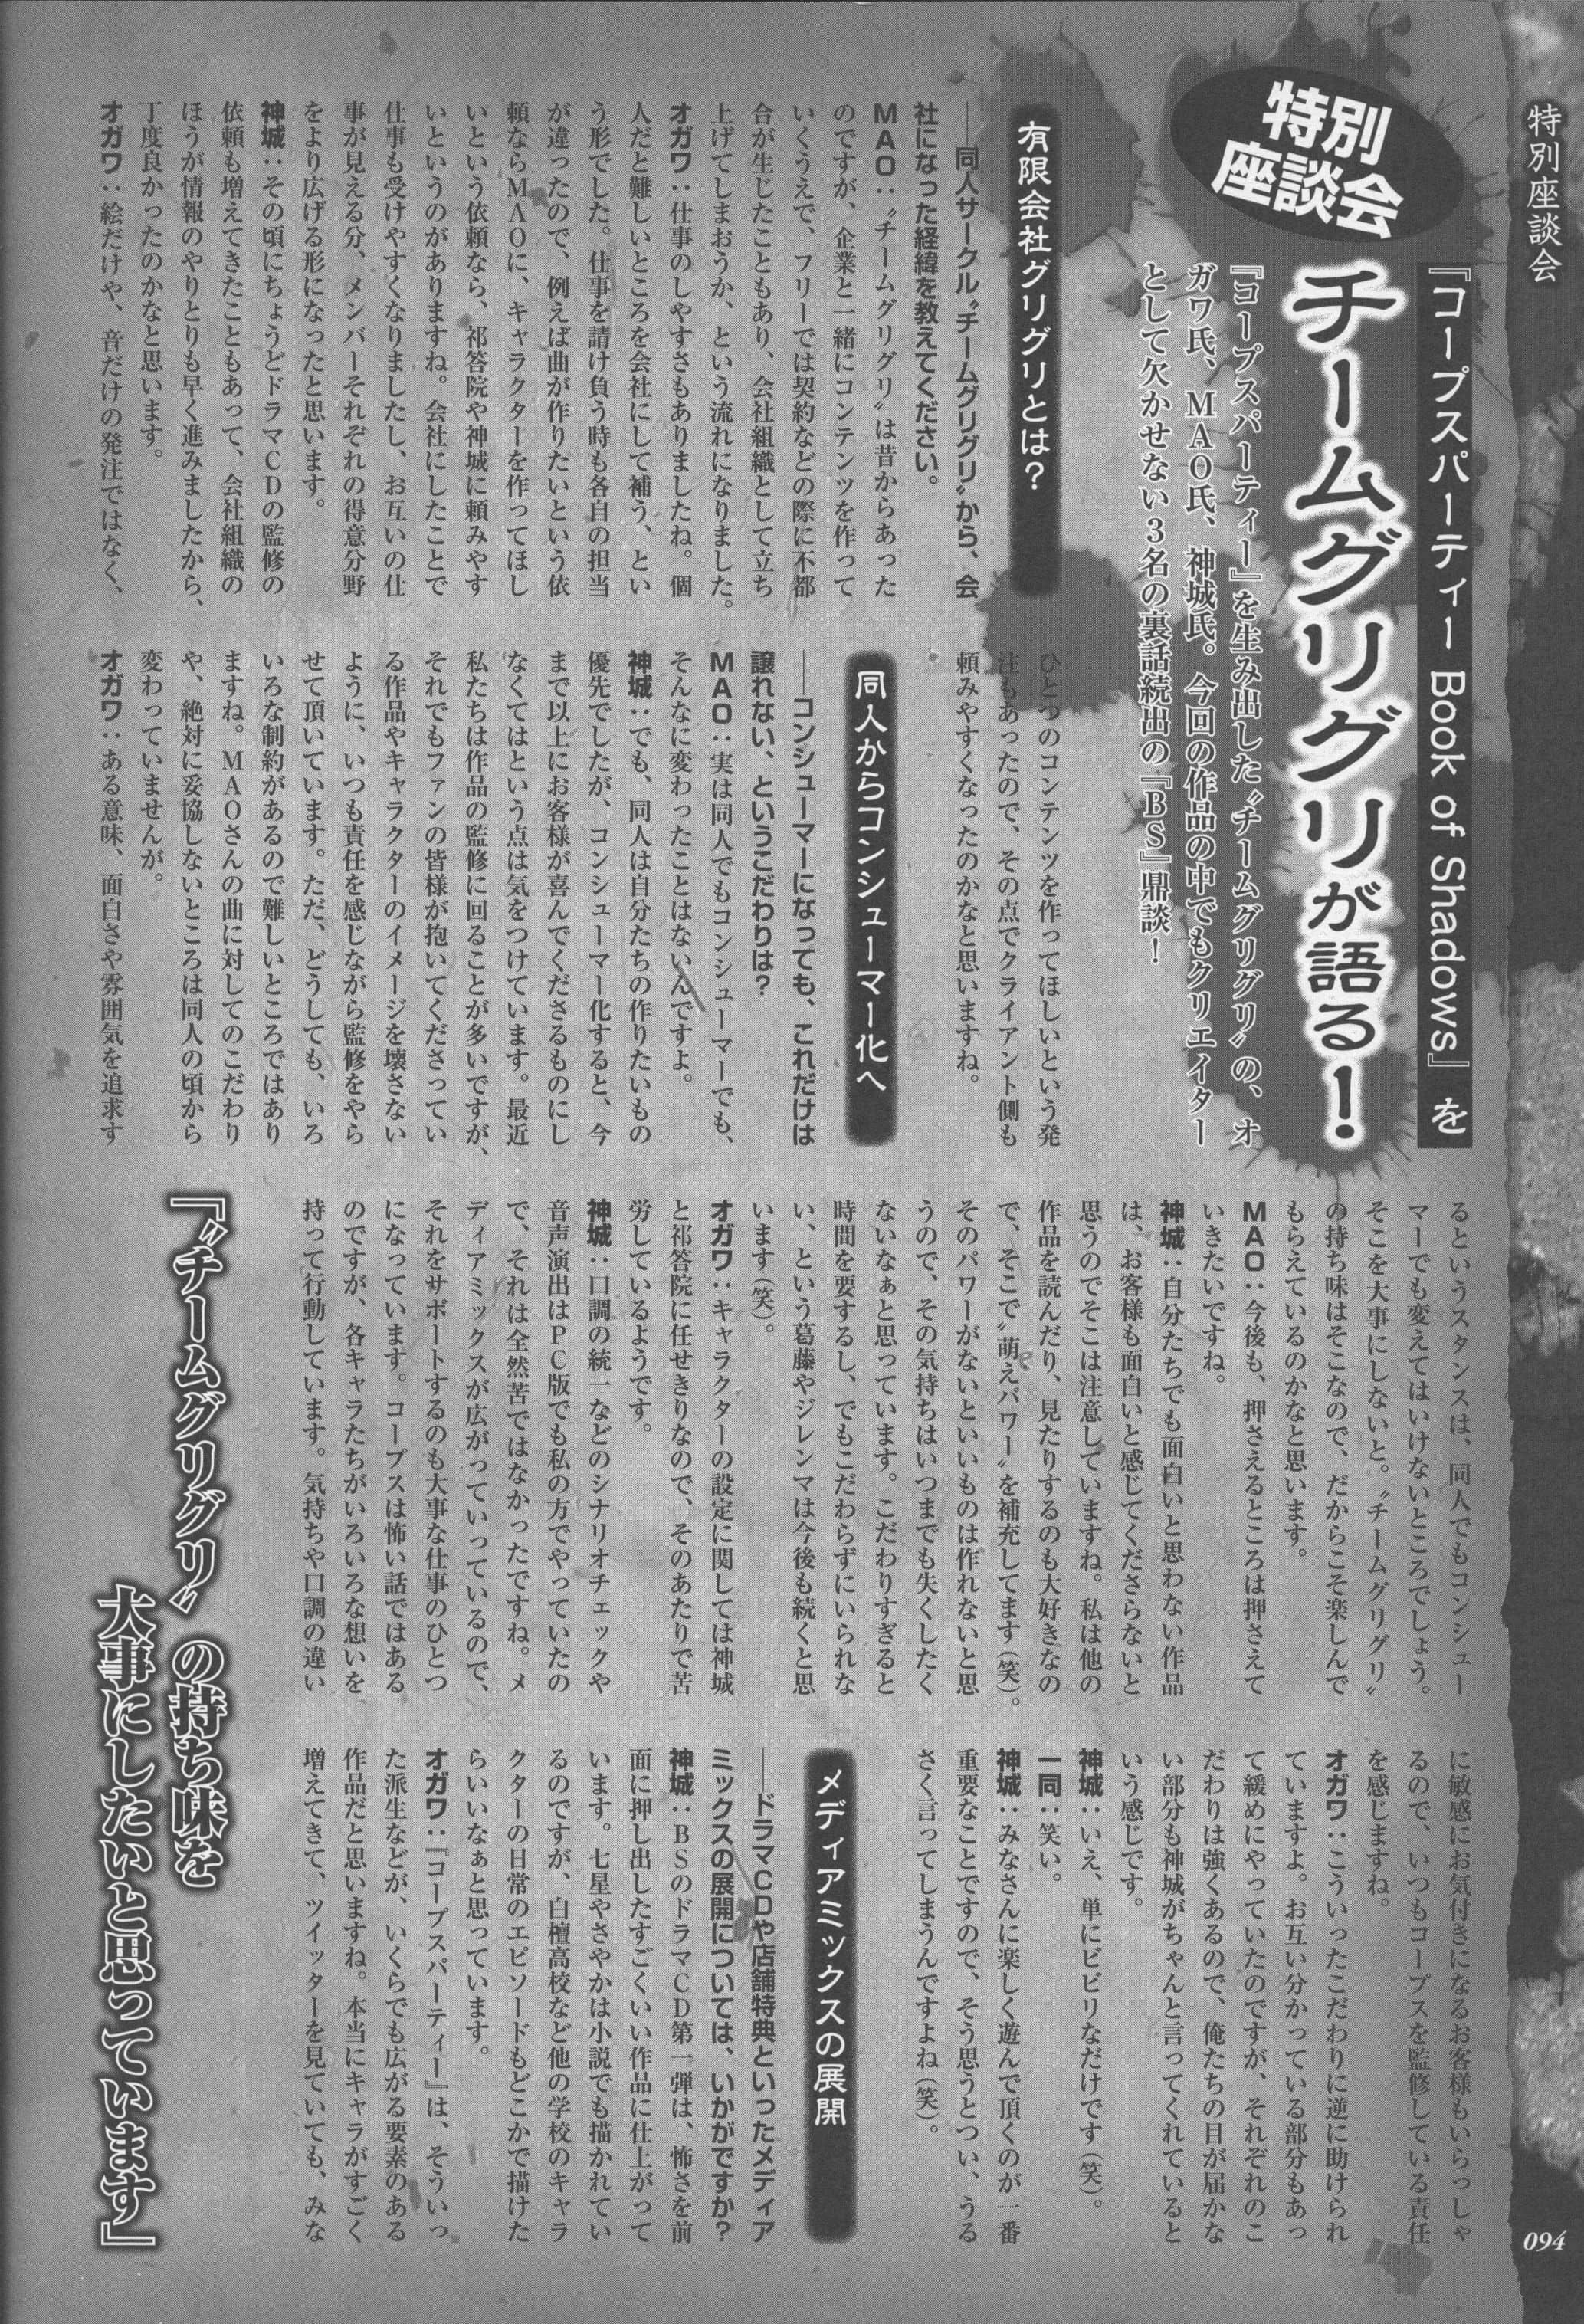 特別座談会
特別
座談会
『コープスパーティー Book of Shadows』を
チームグリグリが語る！
『コープスパーティー』を生み出した〝チームグリグリ〟の、オ
ガワ氏、ＭＡＯ氏、神城氏。今回の作品の中でもクリエイター
として欠かせない３名の裏話続出の『ＢＳ』鼎談！
有限会社グリグリとは？
──同人サークル〝チームグリグリ〟から、会
社になった経緯を教えてください。
ＭＡＯ：〝チームグリグリ〟は昔からあった
のですが、企業と一緒にコンテンツを作って
いくうえで、フリーでは契約などの際に不都
合が生じたこともあり、会社組織として立ち
上げてしまおうか、という流れになりました。
オガワ：仕事のしやすさもありましたね。個
人だと難しいところを会社にして補う、とい
う形でした。仕事を請け負う時も各自の担当
が違ったので、例えば曲が作りたいという依
頼ならＭＡＯに、キャラクターを作ってほし
いという依頼なら、祁答院や神城に頼みやす
いというのがありますね。会社にしたことで
仕事も受けやすくなりましたし、お互いの仕
事が見える分、メンバーそれぞれの得意分野
をより広げる形になったと思います。
神城：その頃にちょうどドラマＣＤの監修の
依頼も増えてきたこともあって、会社組織の
ほうが情報のやりとりも早く進みましたから、
丁度良かったのかなと思います。
オガワ：絵だけや、音だけの発注ではなく、
ひとつのコンテンツを作ってほしいという発
注もあったので、その点でクライアント側も
頼みやすくなったのかなと思いますね。
同人からコンシューマー化へ
──コンシューマーになっても、これだけは
譲れない、というこだわりは？
ＭＡＯ：実は同人でもコンシューマーでも、
そんなに変わったことはないんですよ。
神城：でも、同人は自分たちの作りたいもの
優先でしたが、コンシューマー化すると、今
まで以上にお客様が喜んでくださるものにし
なくてはという点は気をつけています。最近
私たちは作品の監修に回ることが多いですが、
それでもファンの皆様が抱いてくださってい
る作品やキャラクターのイメージを壊さない
ように、いつも責任を感じながら監修をやら
せて頂いています。ただ、どうしても、いろ
いろな制約があるので難しいところではあり
ますね。ＭＡＯさんの曲に対してのこだわり
や、絶対に妥協しないところは同人の頃から
変わっていませんが。
オガワ：ある意味、面白さや雰囲気を追求す
るというスタンスは、同人でもコンシュー
マーでも変えてはいけないところでしょう。
そこを大事にしないと。〝チームグリグリ〟
の持ち味はそこなので、だからこそ楽しんで
もらえているのかなと思います。
ＭＡＯ：今後も、押さえるところは押さえて
いきたいですね。
神城：自分たちでも面白いと思わない作品
は、お客様も面白いと感じてくださらないと
思うのでそこは注意していますね。私は他の
作品を読んだり、見たりするのも大好きなの
で、そこで〝萌えパワー〟を補充してます（笑）。
そのパワーがないといいものは作れないと思
うので、その気持ちはいつまでも失くしたく
ないなぁと思っています。こだわりすぎると
時間を要するし、でもこだわらずにいられな
い、という葛藤やジレンマは今後も続くと思
います（笑）。
オガワ：キャラクターの設定に関しては神城
と祁答院に任せきりなので、そのあたりで苦
労しているようです。
神城：口調の統一などのシナリオチェックや
音声演出はＰＣ版でも私の方でやっていたの
で、それは全然苦ではなかったですね。メ
ディアミックスが広がっていっているので、
それをサポートするのも大事な仕事のひとつ
になっています。コープスは怖い話ではある
のですが、各キャラたちがいろいろな想いを
持って行動しています。気持ちや口調の違い
に敏感にお気付きになるお客様もいらっしゃ
るので、いつもコープスを監修している責任
を感じますね。
オガワ：こういったこだわりに逆に助けられ
ていますよ。お互い分かっている部分もあっ
て緩めにやっていたのですが、それぞれのこ
だわりは強くあるので、俺たちの目が届かな
い部分も神城がちゃんと言ってくれていると
いう感じです。
神城：いえ、単にビビリなだけです（笑）。
一同：笑い。
神城：みなさんに楽しく遊んで頂くのが一番
重要なことですので、そう思うとつい、うる
さく言ってしまうんですよね（笑）。
メディアミックスの展開
──ドラマＣＤや店舗特典といったメディア
ミックスの展開については、いかがですか？
神城：ＢＳのドラマＣＤ第一弾は、怖さを前
面に押し出したすごくいい作品に仕上がって
います。七星やさやかは小説でも描かれてい
るのですが、白檀高校など他の学校のキャラ
クターの日常のエピソードもどこかで描けた
らいいなぁと思っています。
オガワ：『コープスパーティー』は、そういっ
た派生などが、いくらでも広がる要素のある
作品だと思いますね。本当にキャラがすごく
増えてきて、ツイッターを見ていても、みな
『〝チームグリグリ〟の持ち味を
大事にしたいと思っています』
094